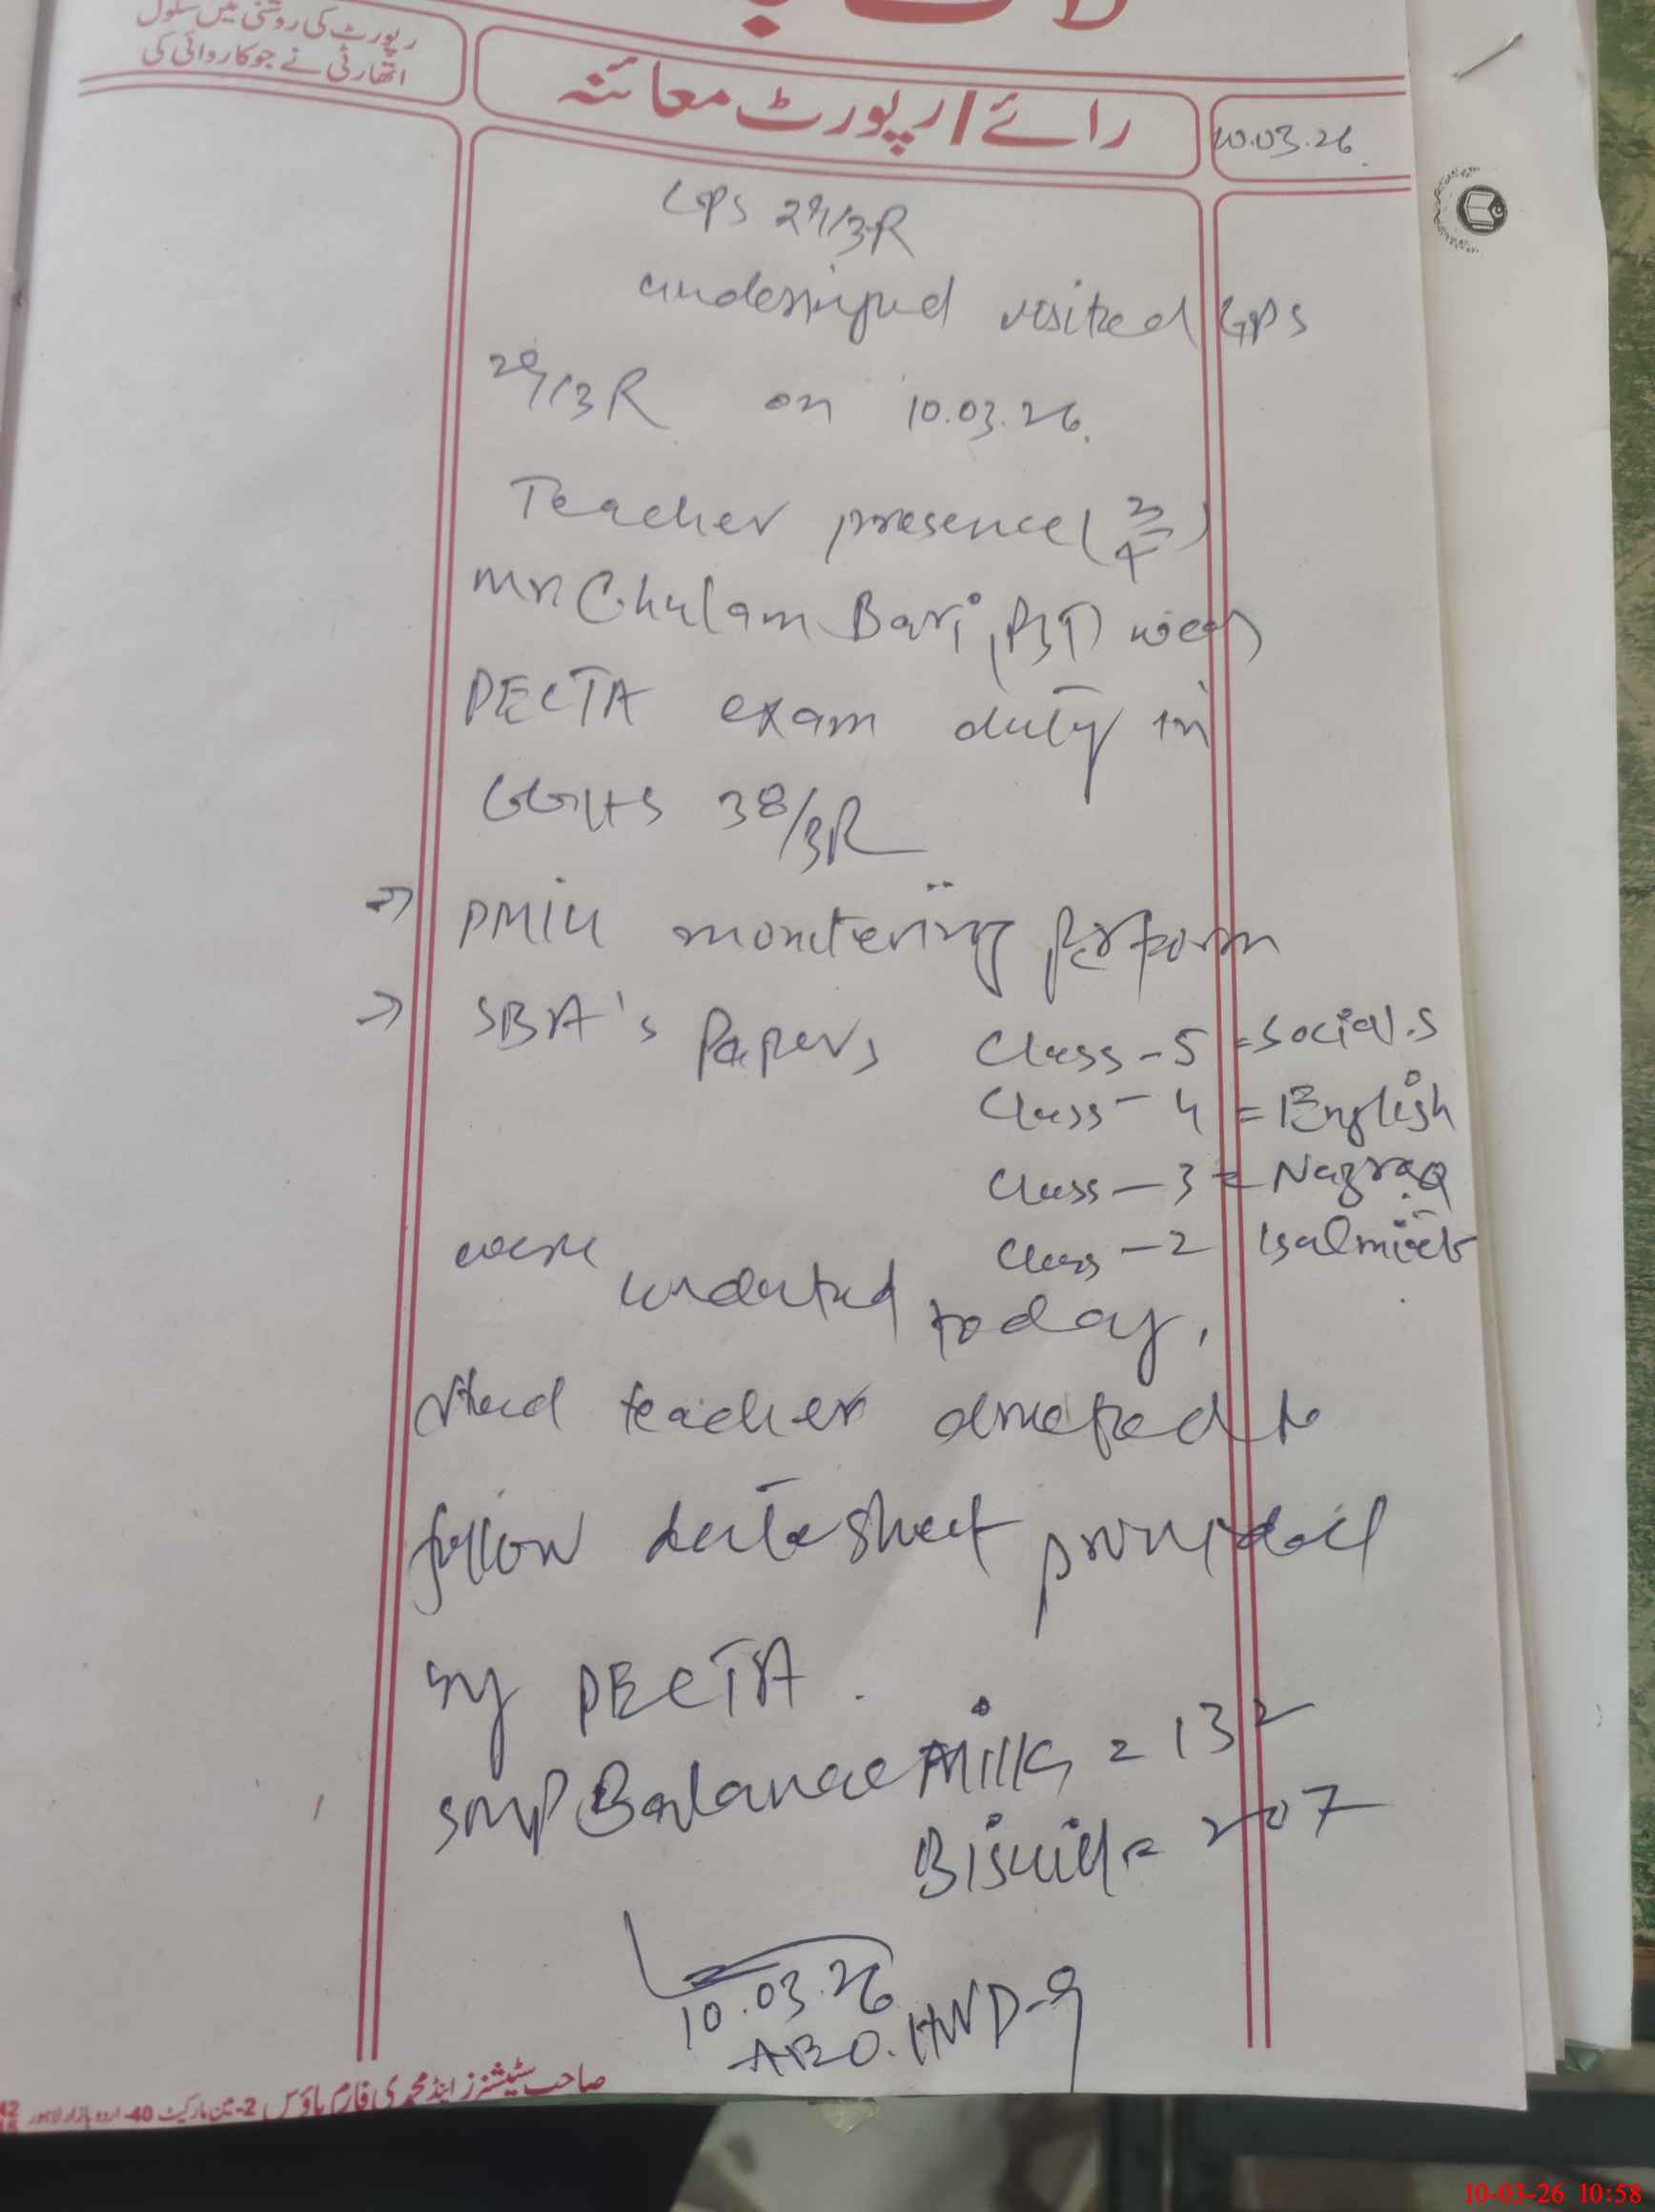 رپورٹ کی روشنی میں سکول
اتھارٹی نے جو کاروائی کی
رائے / رپورٹ معائنہ
10.03.26.
GPS 29/3R
undersigned visited GPS
29/3R on 10.03.26.
Teacher presence (3/4)
Mr Ghulam Bari, (PST) was
PECTA exam duty in
GGHS 38/3R
→ PMIU monitering perform
→ SBA's Papers Class - 5 = Social.S
Class - 4 = English
Class - 3 = Nazraa
Class - 2 Isalmiat
were conducted today,
Head teacher directed to
follow datesheet provided
by PECTA.
SMP Balance Milk = 132
Biscuit = 207
10.03.26
AEO. HND-9
صاحب سٹیشنرز اینڈ محمدی فارم ہاؤس 2-مین مارکیٹ 40-اردو بازار لاہور
10-03-26 10:58